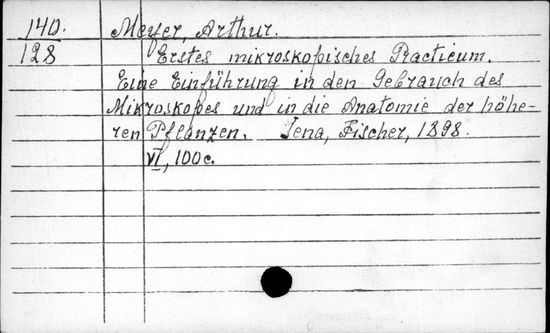 140. Meyer, Arthur.
128 Erstes mikroskopisches Practicum.
Eine Einführung in den Gebrauch des
Mikroskopes und in die Anatomie der höhe-
ren Pflanzen. Jena, Fischer, 1898.
VI, 100 c.